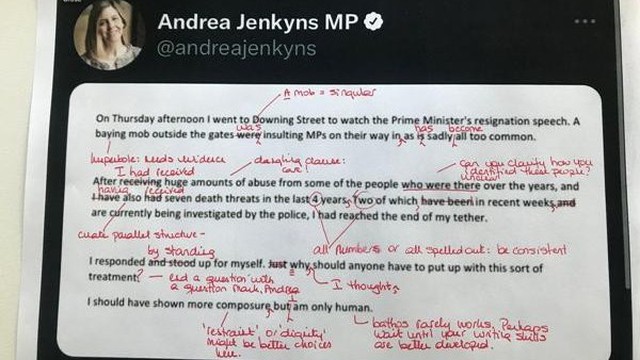 Andrea Jenkyns MP
@andreajenkyns
A mob = singular
On Thursday afternoon I went to Downing Street to watch the Prime Minister's resignation speech. A
was has become
baying mob outside the gates were insulting MPs on their way in as is sadly all too common.
hyperbole: needs evidence
dangling clause:
care!
can you clarify how you
identified these people?
I had received
After receiving huge amounts of abuse from some of the people who were there over the years, and
having received
I have also had seven death threats in the last 4 years. Two of which have been in recent weeks and
are currently being investigated by the police, I had reached the end of my tether.
create parallel structure -
all numbers or all spelled out: be consistent
by standing
I responded and stood up for myself. Just why should anyone have to put up with this sort of
treatment? - end a question with
a question mark, Andrea
I thought,
I should have shown more composure but am only human.
I
'restraint' or 'dignity'
might be better choices
here.
bathos rarely works. Perhaps
wait until your writing skills
are better developed.